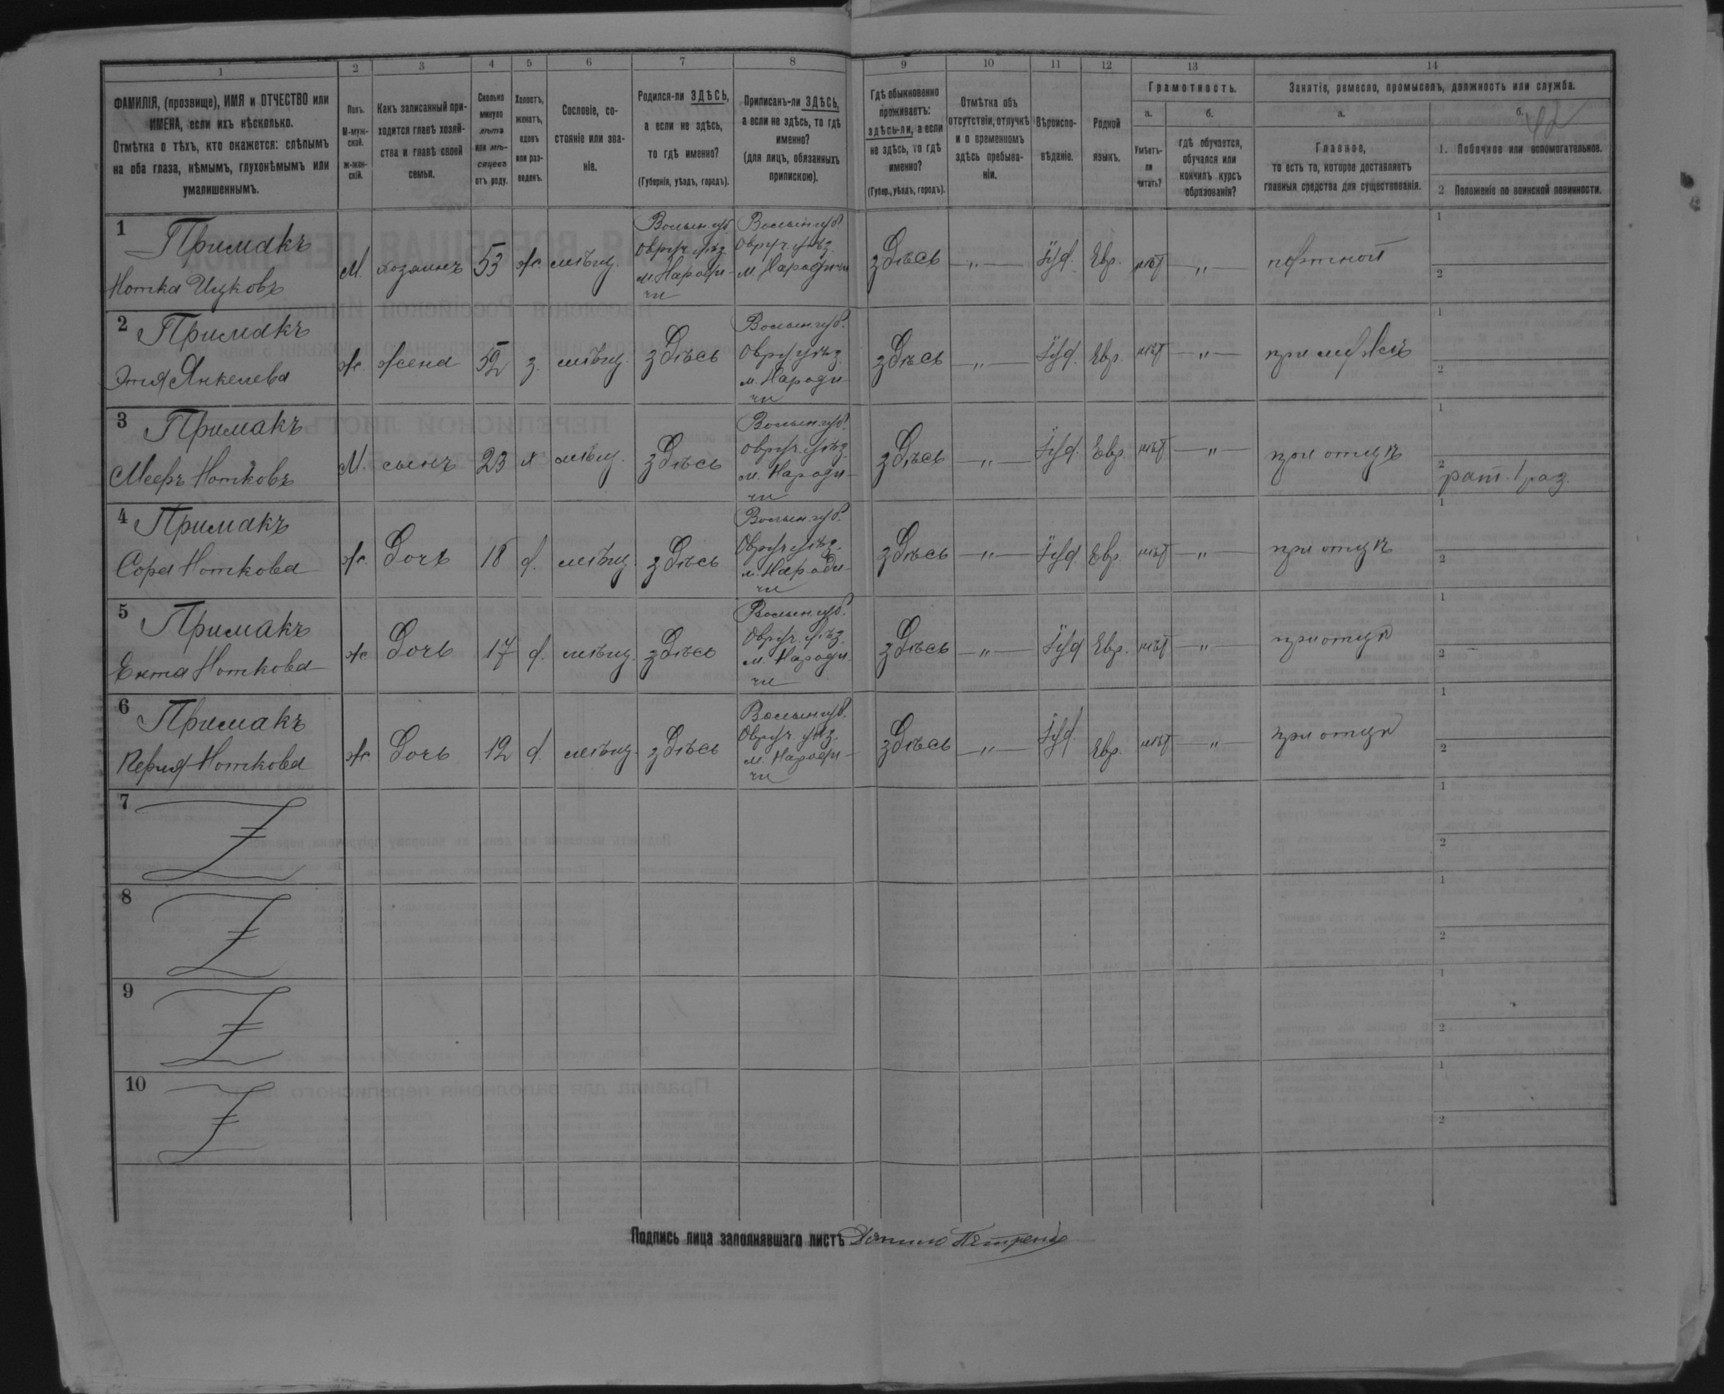 1 2 3 4 5 6 7 8 9 10 11 12 13 14
ФАМИЛІЯ, (прозвище), ИМЯ и ОТЧЕСТВО или
ИМЕНА, если ихъ нѣсколько.
Отмѣтка о тѣхъ, кто окажется: слѣпымъ
на оба глаза, нѣмымъ, глухонѣмымъ или
умалишеннымъ.
Полъ.
М-муж-
ской.
ж-жен-
скій.
Какъ записанный при-
ходится главѣ хозяй-
ства и главѣ своей
семьи.
Сколько
минуло
лѣтъ
или мѣ-
сяцевъ
отъ роду.
Холостъ,
женатъ,
вдовъ
или раз-
веденъ.
Сословіе, со-
стояніе или зва-
ніе.
Родился-ли ЗДѢСЬ,
а если не здѣсь,
то гдѣ именно?
(Губернія, уѣздъ, городъ).
Приписанъ-ли ЗДѢСЬ,
а если не здѣсь, то гдѣ
именно?
(для лицъ, обязанныхъ
припискою).
Гдѣ обыкновенно
проживаетъ:
здѣсь-ли, а если
не здѣсь, то гдѣ
именно?
(Губер., уѣздъ, городъ).
Отмѣтка объ
отсутствіи, отлучкѣ
и о временномъ
здѣсь пребыва-
ніи.
Вѣроиспо-
вѣданіе.
Родной
языкъ.
Грамотность.
а.
Умѣетъ-
ли
читать?
б.
гдѣ обучается,
обучался или
кончилъ курсъ
образованія?
Занятіе, ремесло, промыселъ, должность или служба.
а.
Главное,
то есть то, которое доставляетъ
главныя средства для существованія.
б.
42
1. Побочное или вспомогательное.
2 Положеніе по воинской повинности.
1
Примакъ
Нотка Ицковъ
М. хозяинъ 53 ж. мѣщ.
Волын. губ.
Овруч. уѣз.
м. Народи-
чи
Волын. губ.
Овруч. уѣз.
м. Народичи
здѣсь —„— Іуд. Евр. нѣт —„— портной
1
2
2
Примакъ
Этя Янкелева
ж. жена 52 з. мѣщ. здѣсь
Волын. губ.
Овруч. уѣз
м. Народи-
чи
здѣсь —„— Іуд. Евр. нѣт —„— при мужѣ
1
2
3
Примакъ
Мееръ Нотковъ
М. сынъ 23 х мѣщ. здѣсь
Волын. губ.
Овруч. уѣз.
м. Народи-
чи
здѣсь —„— Іуд. Евр. нѣт —„— при отцѣ
1
2
рат. 1 раз.
4
Примакъ
Сора Ноткова
ж. Дочь 18 д. мѣщ. здѣсь
Волын. губ.
Овруч. уѣз.
м. Народи-
чи
здѣсь —„— Іуд Евр. нѣт —„— при отцѣ
1
2
5
Примакъ
Ента Ноткова
ж. Дочь 17 д. мѣщ. здѣсь
Волын. губ.
Овруч. уѣз.
м. Народи-
чи
здѣсь —„— Іуд Евр. нѣт —„— при отцѣ
1
2
6
Примакъ
Перля Ноткова
ж. Дочь 12 д. мѣщ. здѣсь
Волын. губ.
Овруч. уѣз.
м. Народи-
чи
здѣсь —„— Іуд. Евр. нѣт —„— при отцѣ
1
2
7
1
2
8
1
2
9
1
2
10
1
2
Подпись лица заполнявшаго листъ